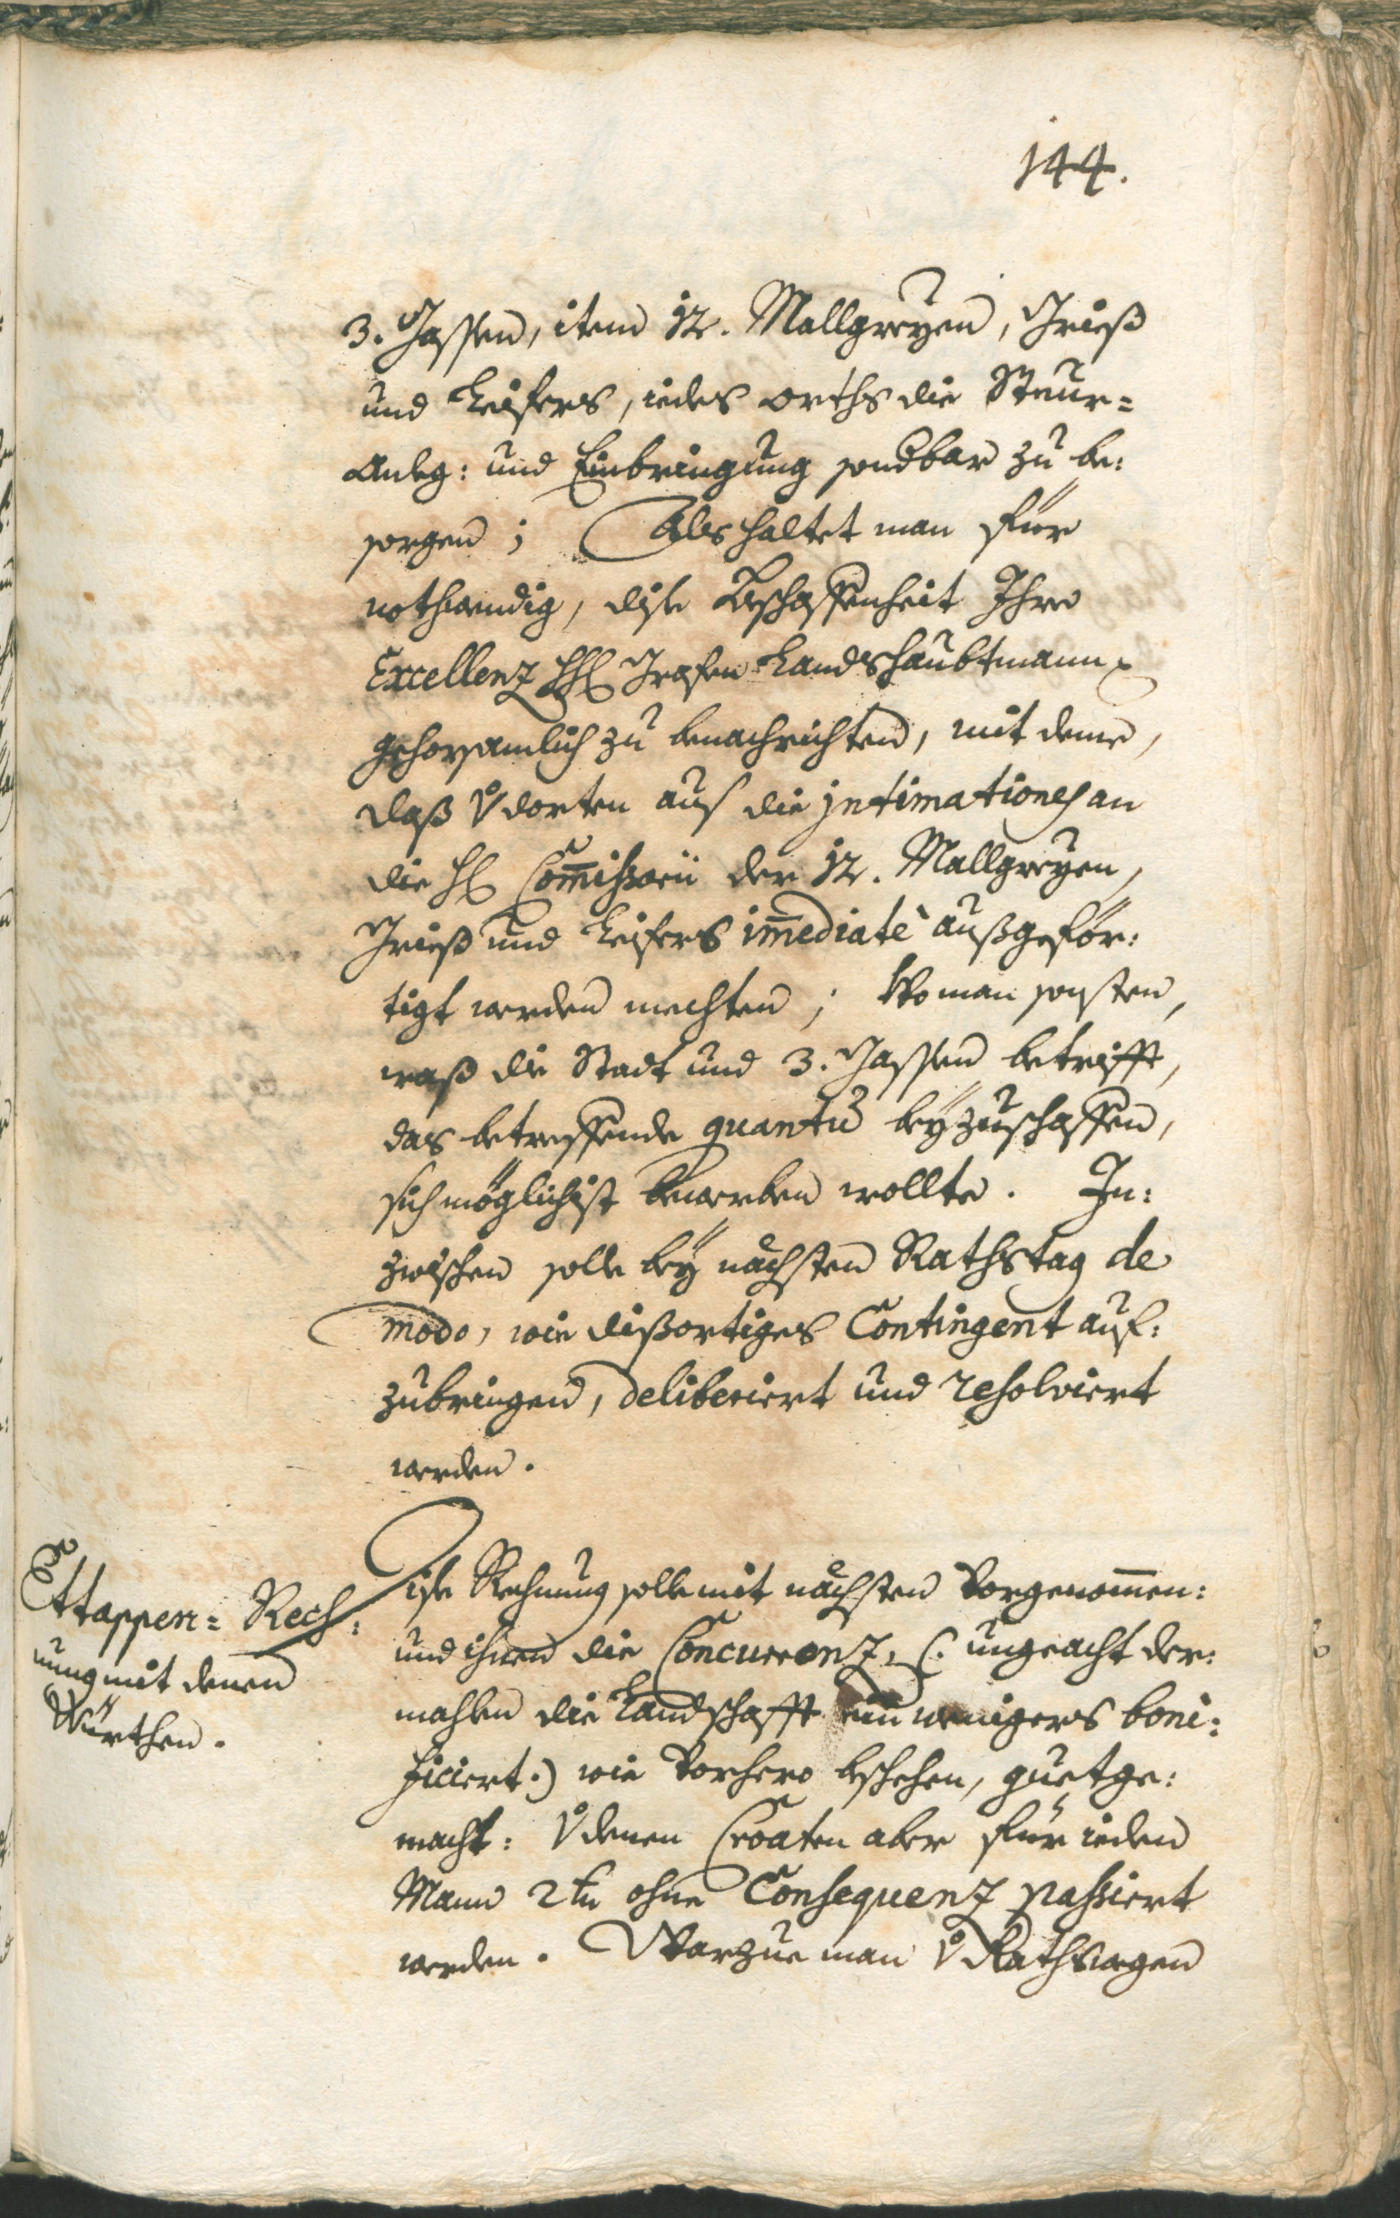 144.
3. Gassen, item 12. Mallgreyen, Grieß
und Leifers, iedes orths die Steur=
Anleg: und Einbringung sondbar zu be:
sorgen; Als haltet man für
nothwendig, dise Beschaffenheit Ihro
Excellenz HH Grafen Landshaubtmann
gehorsamlich zu benachrichten, mit deme,
daß v dorten auf die jntimationes an
die H Com̄issarii der 12. Mallgreyen,
Grieß und Leifers im̄ediatè außgeför:
tigt werden mechten; Wo man sonsten,
waß die Statt und 3. Gassen betrifft,
das betreffende quantū beyzuschaffen,
sich möglichist bewerben wollte. In:
zwischen solle bey nächsten Rathstag de
modo, wie dißortiges Contingent auf:
zubringen, deliberiert und resolviert
werden.
Ettappen= Rech:
nung mit denen
Würthen.
Dise Rechnung solle mit nächsten Vorgenom̄en:
und ihnen die Concurrenz, (: ungeacht der:
mahlen die Landschafft ein wenigers boni:
ficiert:) wie Vorhero beschehen, guetge:
macht: v denen Croaten aber für ieden
Mann 2 kr ohne Consequenz passiert
werden. Warzue man v Rathswegen